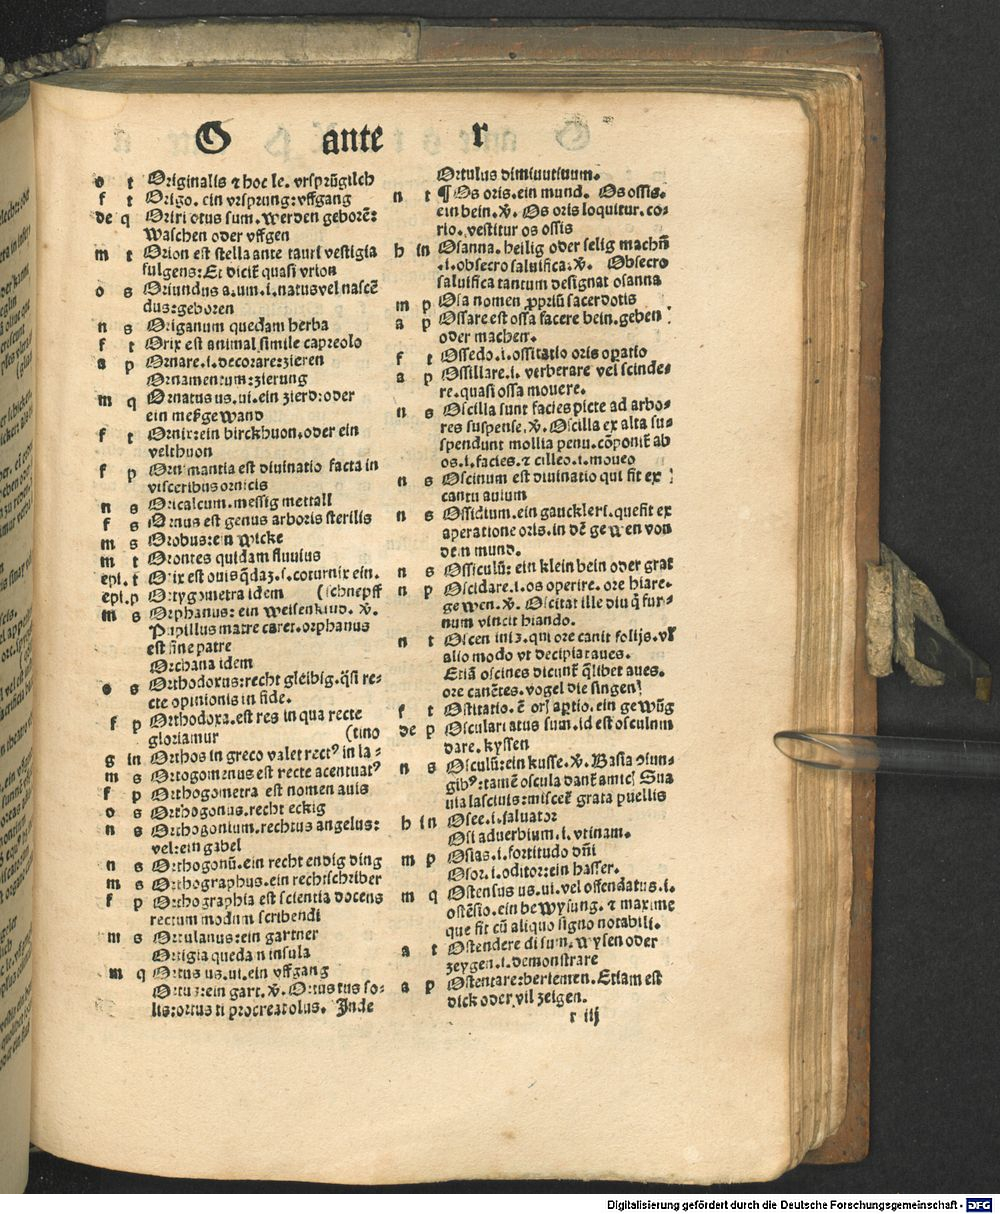 O ante r
o t Originalis ⁊ hoc le. vrsprũgilch
f t Origo. ein vrsprung: vffgang
de q Oriri otus sum. werden geborẽ:
waschen oder vffgen
m t Orion est stella ante tauri vestigia
fulgens: Et dicit̃ quasi vrion
o s Oriundus a.um.i.natus vel nascẽ
dus: geboren
n s Origanum quedam herba
f t Orix est animal simile capreolo
a p Ornare.i.decorare: zieren
Ornamentum: zierung
m q Ornatus us.ui.ein zierd: oder
ein meßgewand
f t Ornix: ein birckhuon.oder ein
velthuon
f p Ornimantia est diuinatio facta in
visceribus ornicis
n s Oricalcum.messig mettall
f s Ornus est genus arboris sterilis
m s Orobus: ein wicke
m t Orontes quidam fluuius
epi.t Orix est ouis q̃daz.s.coturnix ein.
epi.p Ortygometra idem (schnepff
m s Orphanus: ein weisenkind. v̆.
Pupillus matre caret.orphanus
est sine patre
Orchana idem
o s Orthodoxus: recht gleibig.q̃si re⸗
cte opinionis in fide.
f p Orthodoxa.est res in qua recte
gloriamur (tino
g in Orthos in greco valet rectꝰ in la⸗
m s Ortogomenus est recte acentuatꝰ
f p Orthogometra est nomen auis
o s Orthogonus.recht eckig
n s Orthogonium.rechtus angelus:
vel: ein gabel
n s Orthogonũ.ein recht endig ding
m s Orthographus.ein rechtschriber
f p Orthographia est scientia docens
rectum modum scribendi
m s Ortulanus: ein gartner
Ortigia quedam insula
m q Ortus us.ui.ein vffgang
Ortuz: ein gart. v̆. Ortus tus so⸗
lis: ortus ti procreat olus. Inde
Ortulus diminutiuum.
n t ¶ Os oris.ein mund. Os ossis.
ein bein. v̆. Os oris loquitur.co⸗
rio.vestitur os ossis
h in Osanna.heilig oder selig machñ
.i.obsecro saluifica. v̆. Obsecro
saluifica tantum designat osanna
m p Osa nomen ꝓpriũ sacerdotis
a p Ossare est ossa facere bein.geben
oder machen.
f t Ossedo.i.ossitatio oris oꝑatio
a p Ossillare.i.verberare vel scinde⸗
re.quasi ossa mouere.
n s Oscilla sunt facies picte ad arbo⸗
res suspense. v̆. Oscilla ex alta su⸗
spendunt mollia penu.cõponit̃ ab
os.i.facies.⁊ cilleo.i.moueo
n s Oscinum est diuinatio qui fit ex
cantu auium
n s Ossidium.ein gauckleri.que fit ex
aperatione oris.in dẽ gewen von
dem mund.
n s Ossiculũ: ein klein bein oder grat
n p Oscidare.i.os operire.ore hiare.
gewen. v̆. Oscitat ille diu q̃ fur⸗
num vincit hiando.
n t Oscen iniz.qui ore canit folijs.vl̃
alio modo vt decipiat aues.
Etiã oscines dicunt̃ q̃libet aues.
ore canẽtes.vogel die singen
f t Ostitatio.ẽ oris aꝑtio.ein gewũg
de p Osculari atus sum.id est osculum
dare.kyssen
n s Osculũ: ein kusse. v̆. Basia ꝯiun⸗
gibꝰ: tamẽ oscula dant̃ amicis Sua
uia lasciuis: miscet̃ grata puellis
h in Osee.i.saluator
Osi aduerbium.i.vtinam.
m p Osias.i.fortitudo dñi
Osor.i.oditor: ein hasser.
m q Ostensus us.ui.vel offendatus.i.
ostẽsio.ein bewysung.⁊ maxime
que fit cũ aliquo signo notabili.
a t Ostendere di sum.wysen oder
zeygen.i.demonstrare
a p Ostentare: beriemen.Etiam est
dick oder vil zeigen.
r iij
Digitalisierung gefördert durch die Deutsche Forschungsgemeinschaft - DFG